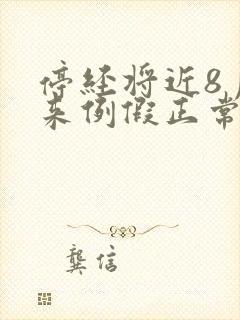 停经将近8
来例假正常
龚信